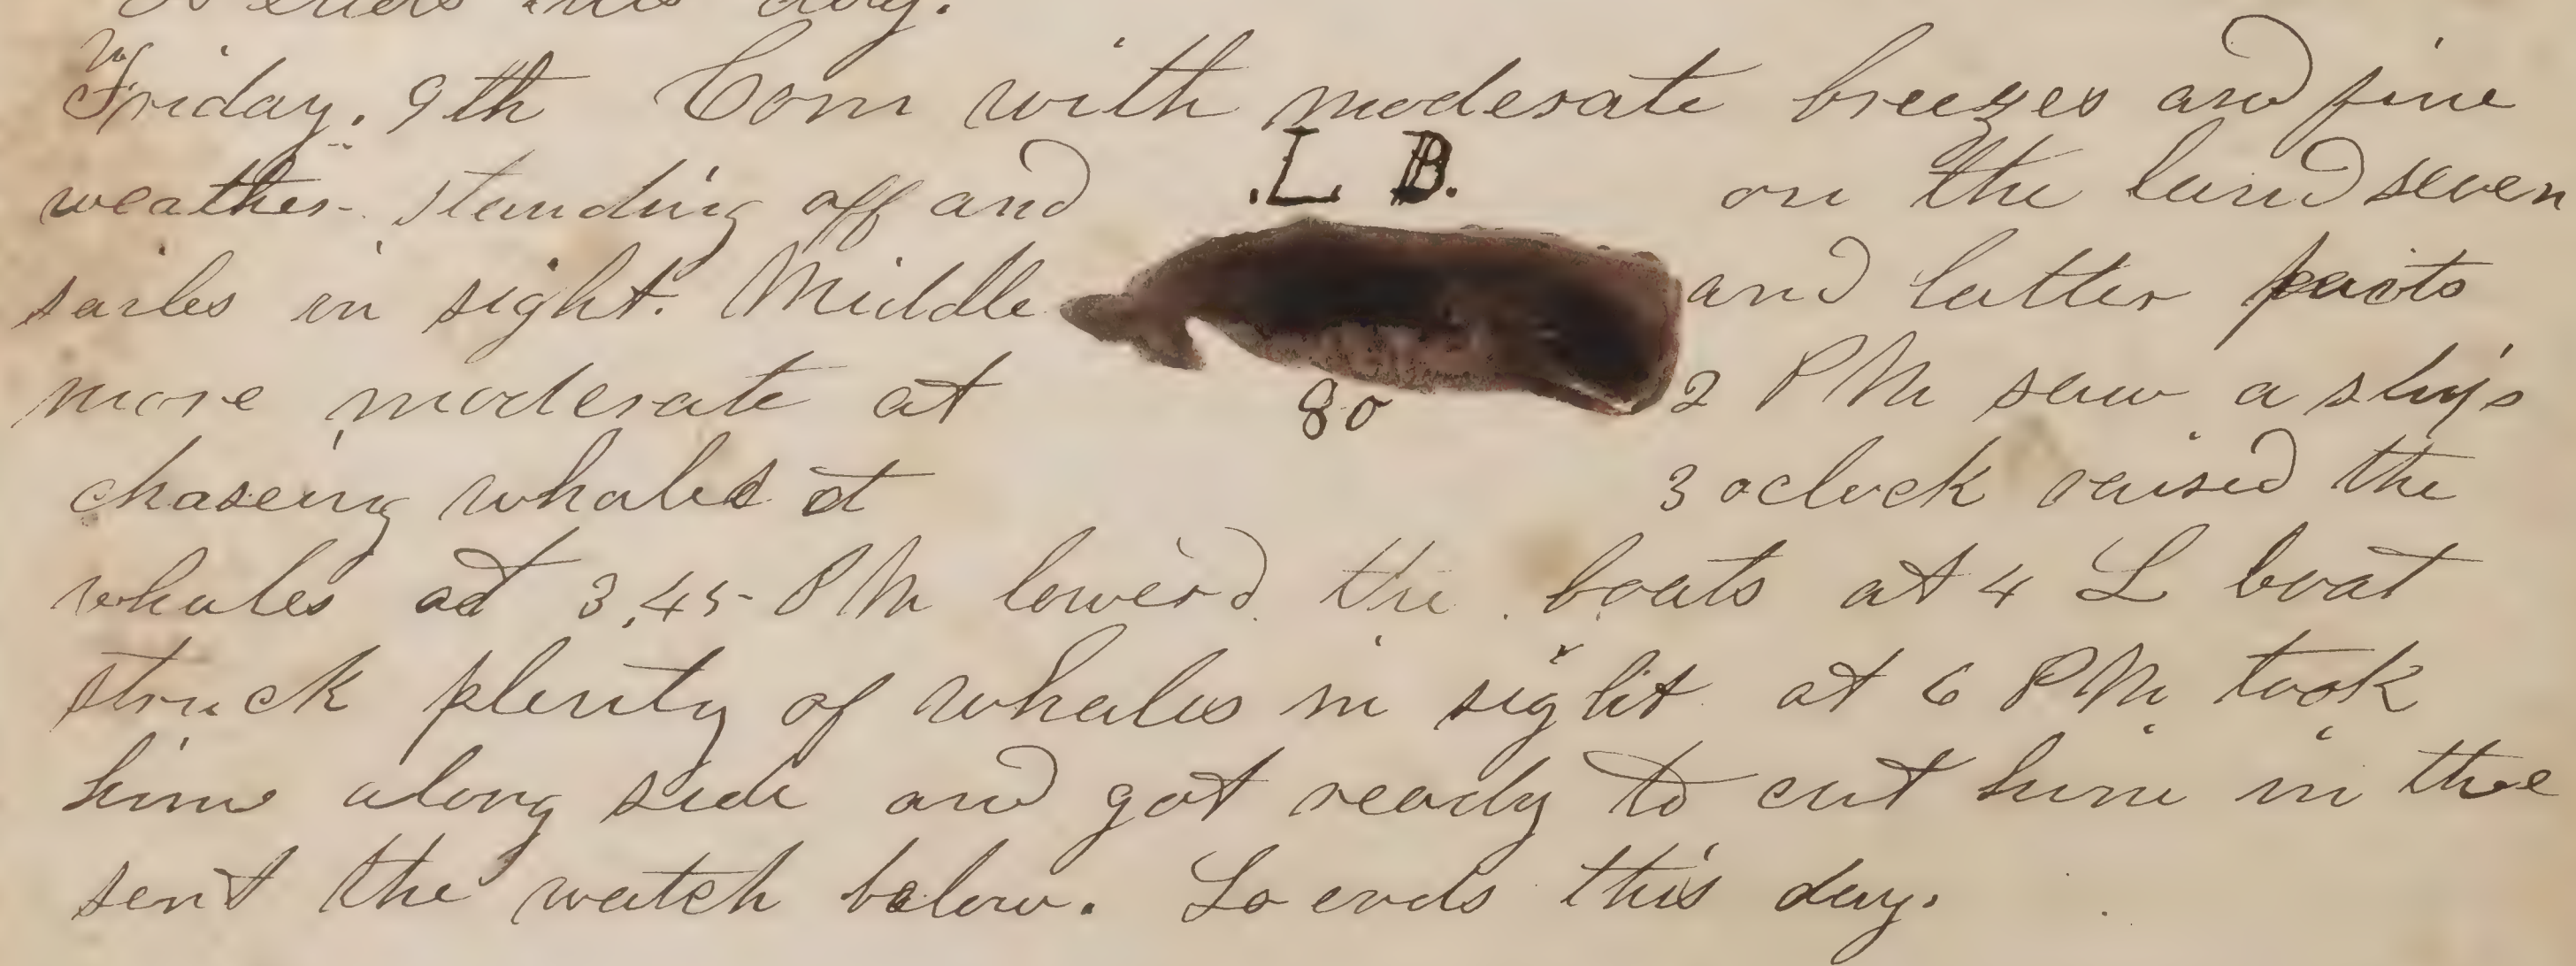 So ends this day.
Friday. 9th Com with moderate breezes and fine
L. B.
weather standing off and on the land seven
sailes in sight. Middle and latter parts
more moderate at 2 PM saw a ship
80
chaseing whales at 3 oclock raised the
whales at 3,45 PM lower'd the boats at 4 L boat
struck plenty of whales in sight at 6 PM took
him along side and got ready to cut him in the
sent the watch below. So ends this day.